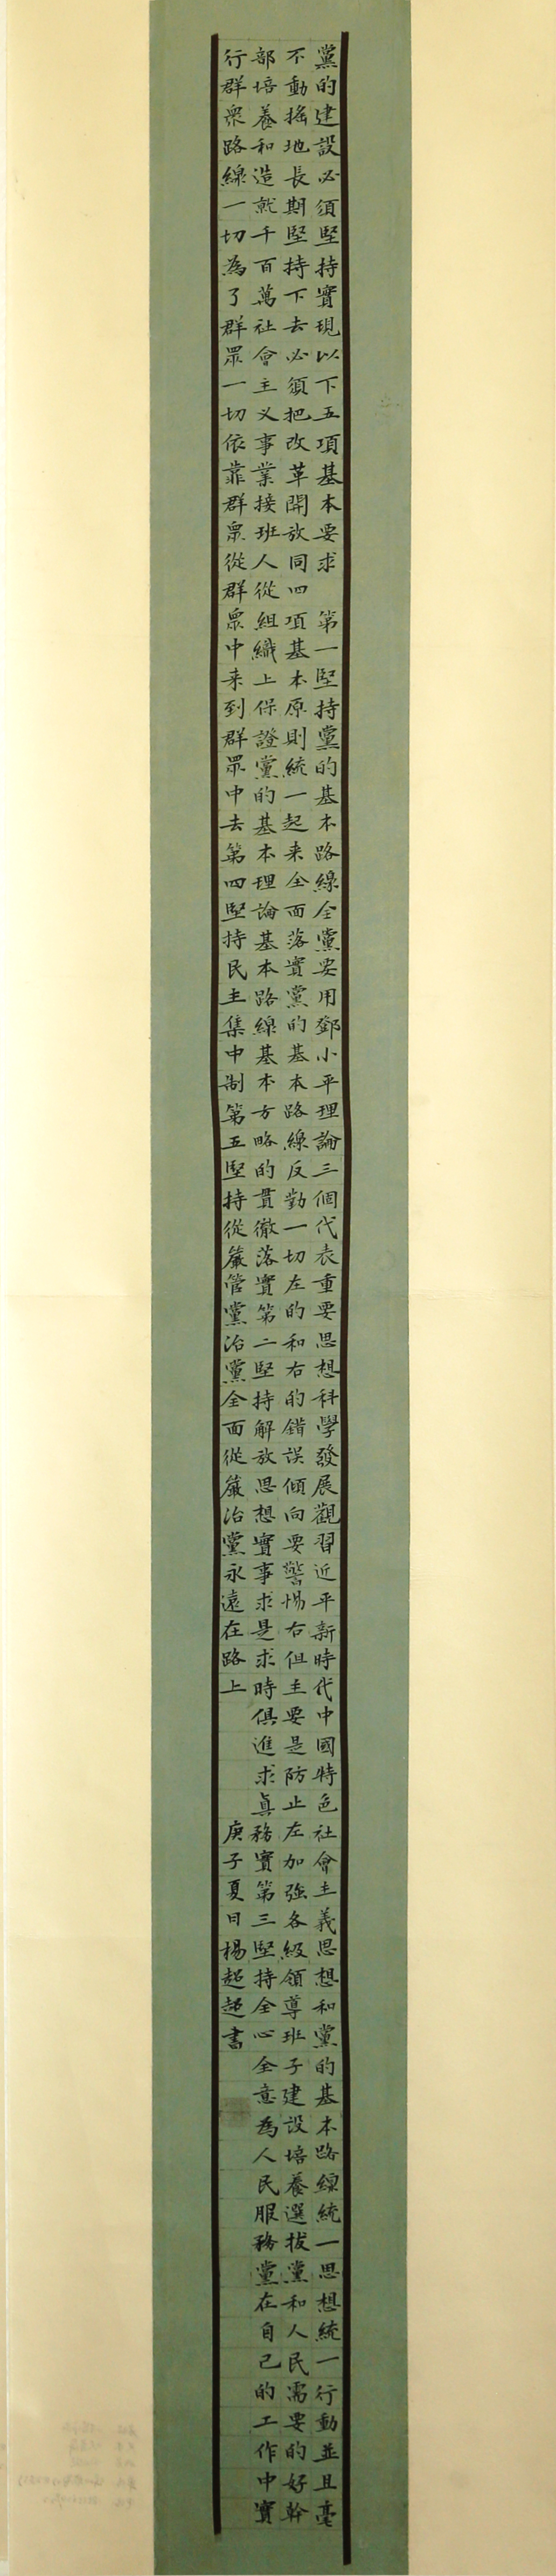 黨的建設必須堅持實現以下五項基本要求 第一堅持黨的基本路線全黨要用鄧小平理論三個代表重要思想科學發展觀習近平新時代中國特色社會主義思想和黨的基本路線統一思想統一行動並且毫
不動搖地長期堅持下去必須把改革開放同四項基本原則統一起来全面落實黨的基本路線反對一切左的和右的錯誤傾向要警惕右但主要是防止左加強各級領導班子建設培養選拔黨和人民需要的好幹
部培養和造就千百萬社會主义事業接班人從組織上保證黨的基本理論基本路線基本方略的貫徹落實第二堅持解放思想實事求是求時俱進求真務實第三堅持全心全意為人民服務黨在自己的工作中實
行群衆路線一切為了群眾一切依靠群衆從群衆中来到群眾中去第四堅持民主集中制第五堅持從嚴管黨治黨全面從嚴治黨永遠在路上 庚子夏日楊超超書